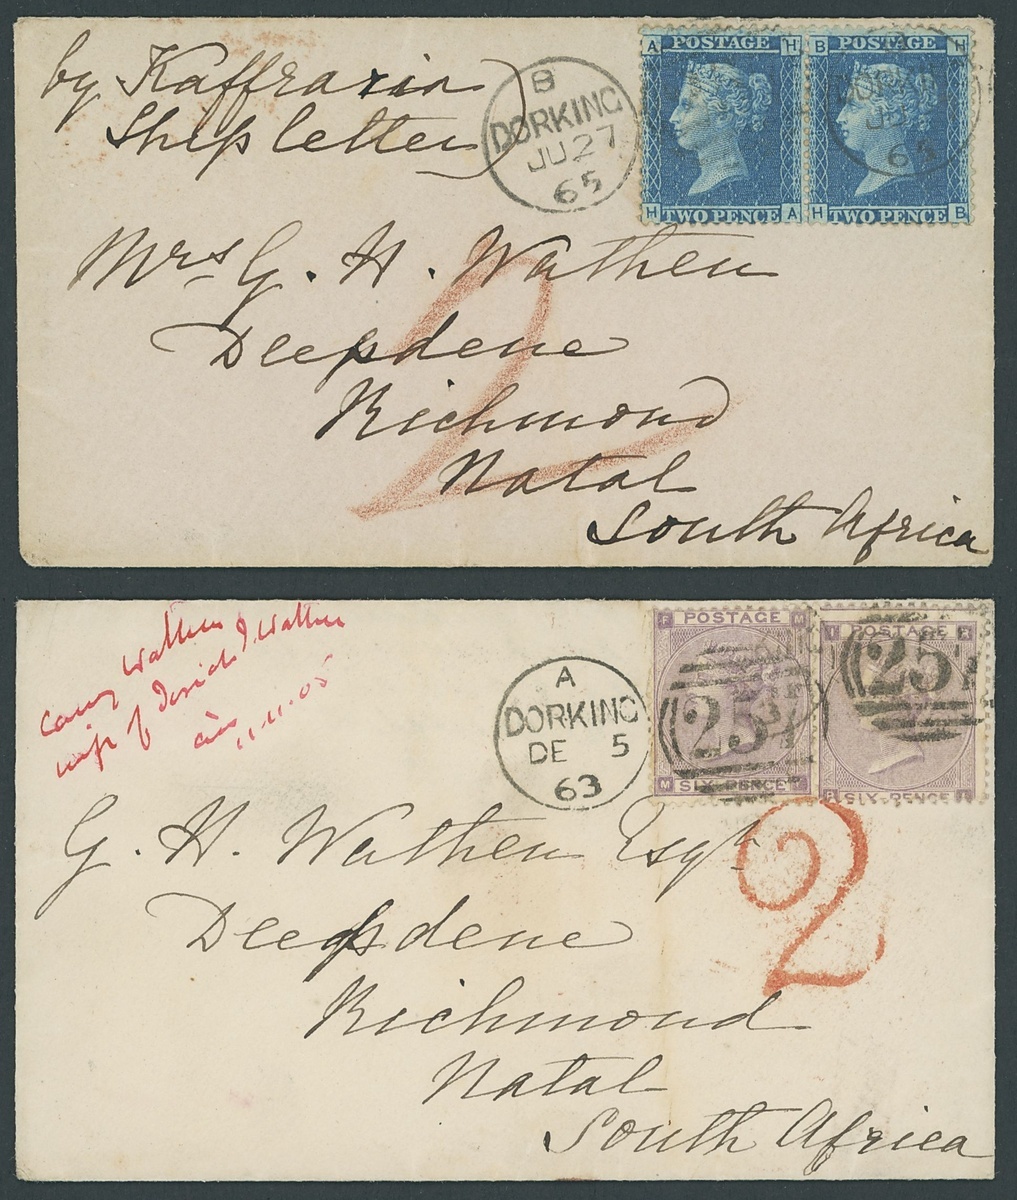 by Kaffrarian
Ship letter
B
DORKING
JU 27
65
A POSTAGE H
H TWO PENCE A
B POSTAGE H
H TWO PENCE B
65
Mrs G. H. Wathen
Deepdene
Richmond
Natal
South Africa
2
wife of
A
DORKING
DE 5
63
F POSTAGE M
25
M SIX PENCE F
POSTAGE
25
SIX PENCE
G. H. Wathen Esqr
2
Deepdene
Richmond
Natal
South Africa